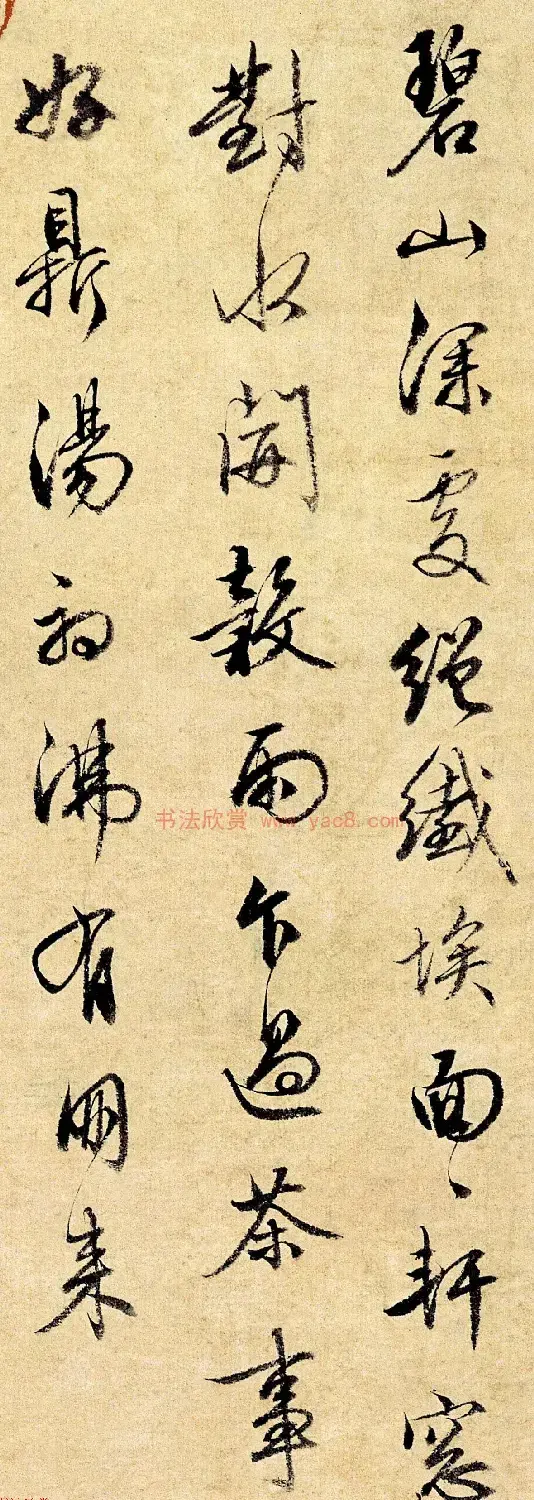 碧山深處絕纖埃面〻軒窓
對水開穀雨乍過茶事
好鼎湯初沸有朋来
书法欣赏 www.yac8.com